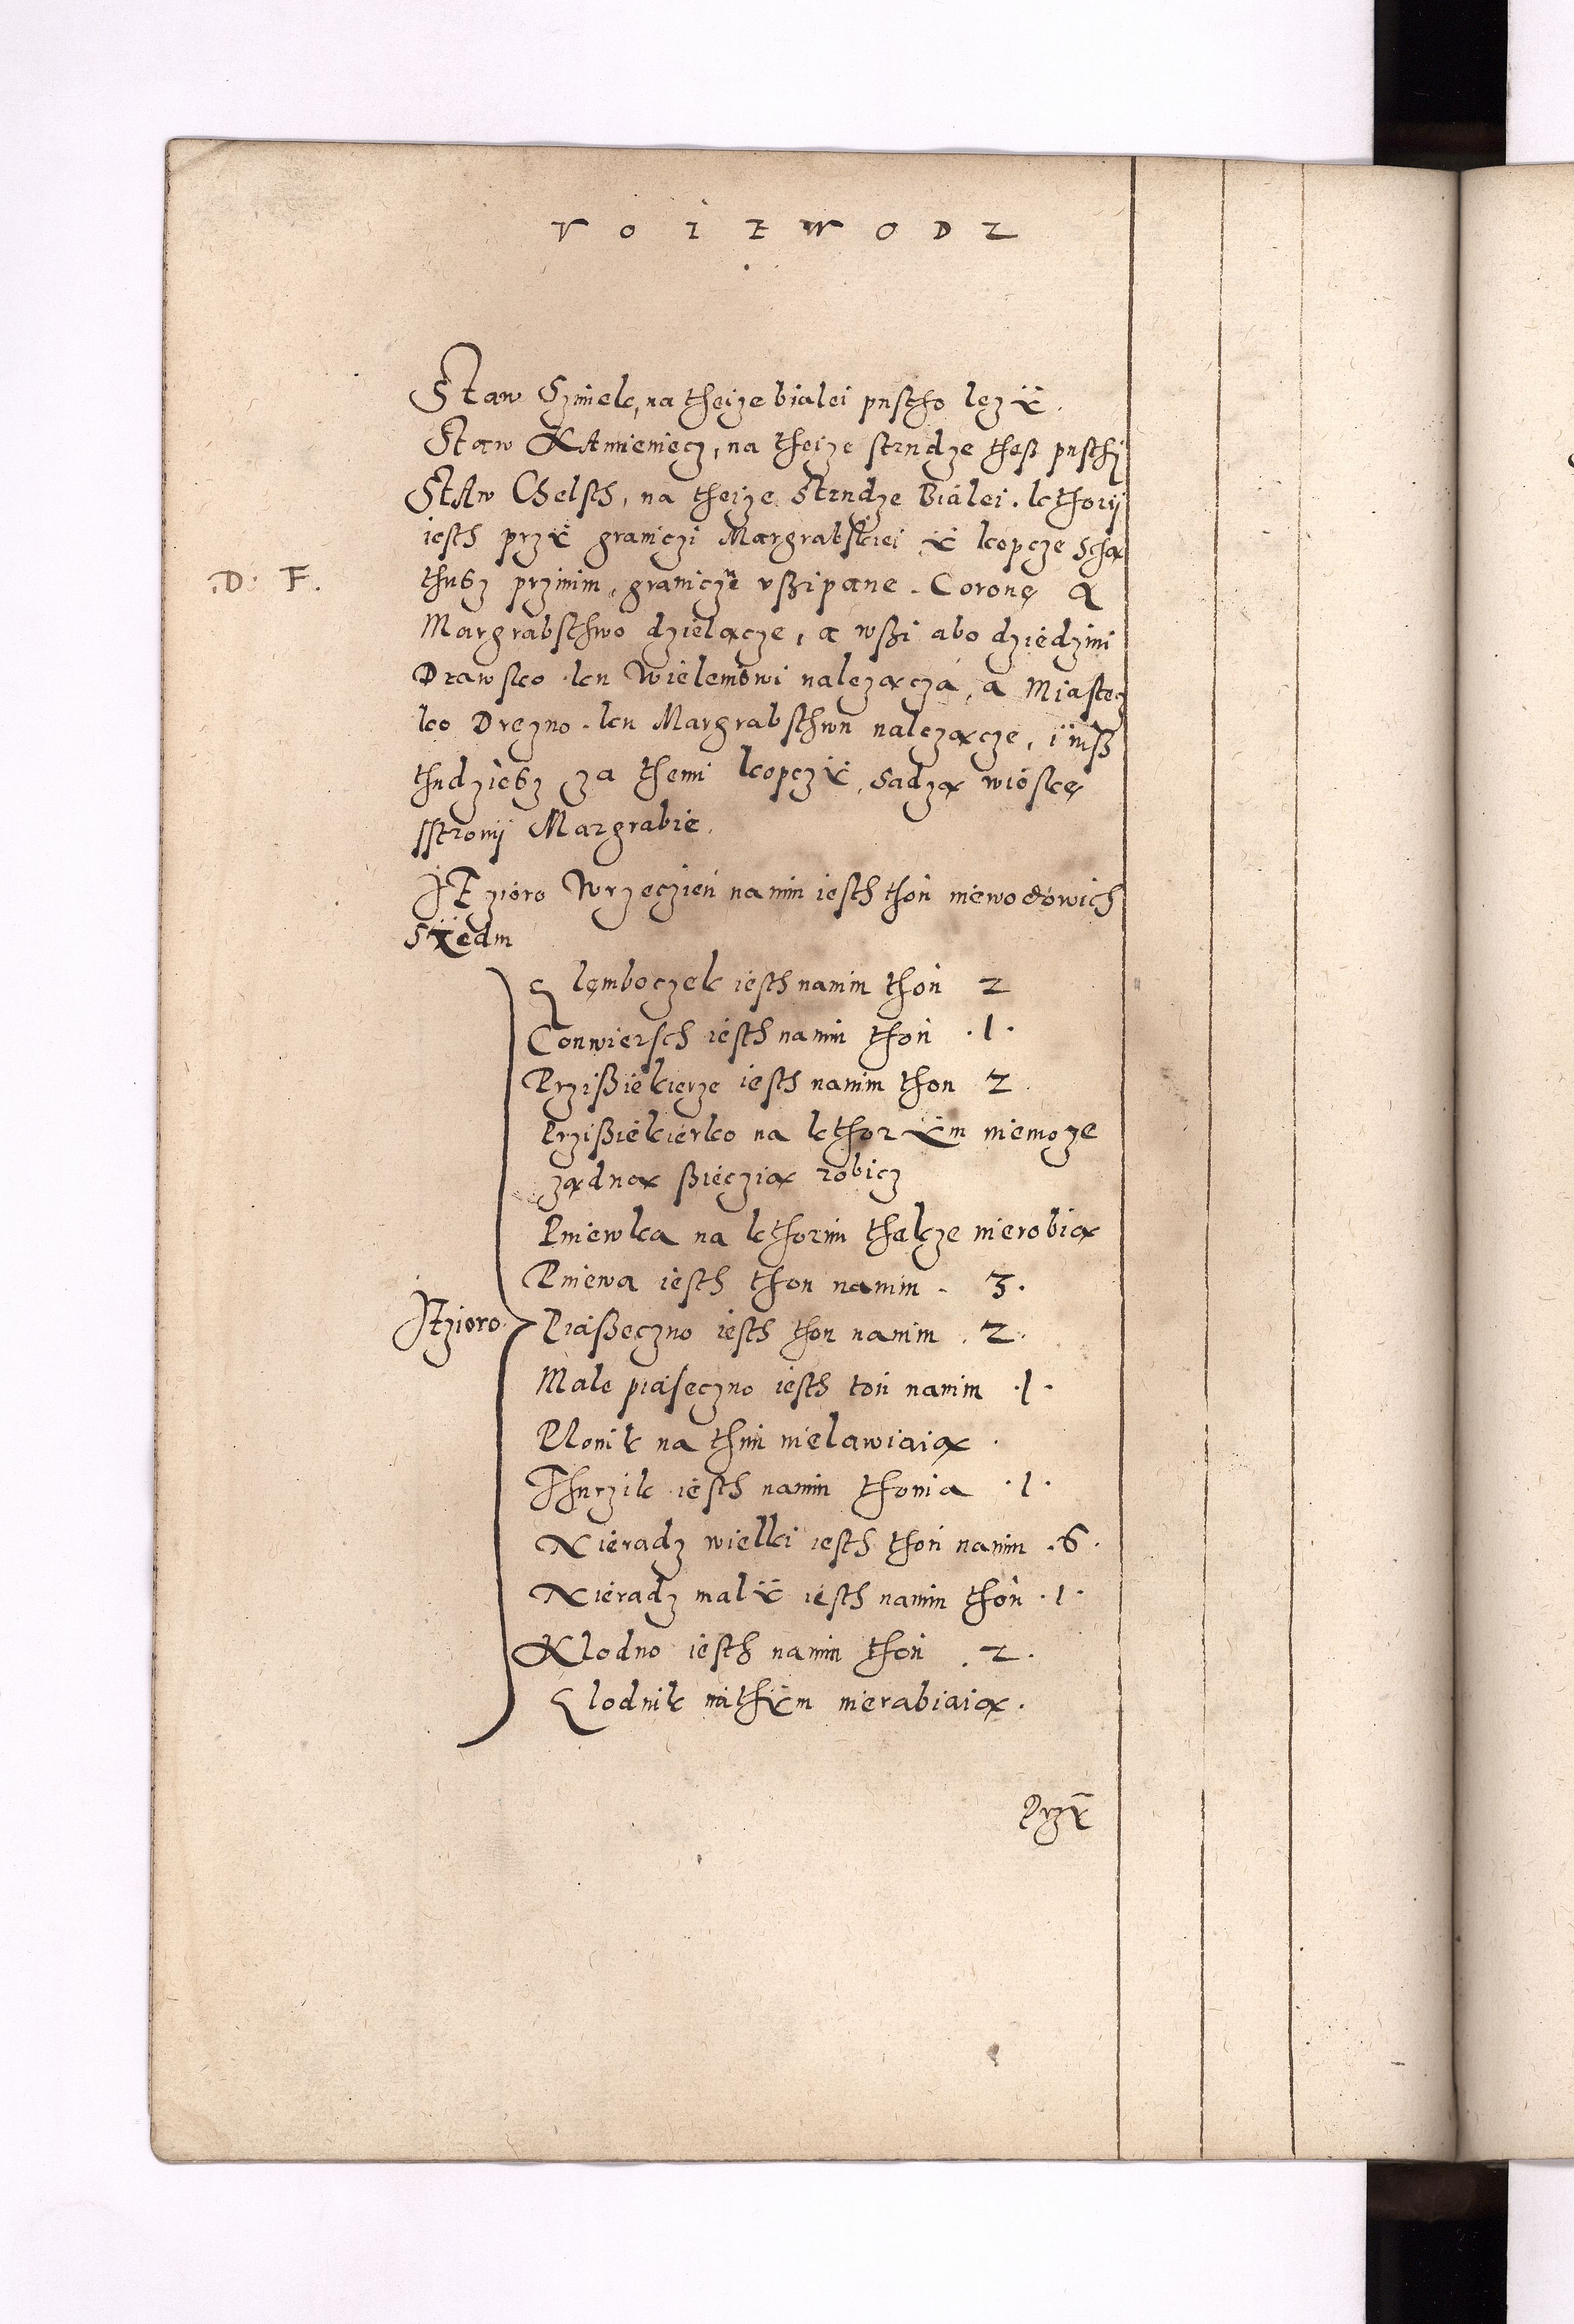 VOIEWODZ
Staw Szmelc, na theize bialei pustho lezÿ.
Staw KAmieniecz, na theize strudze theß pusthy
StAw Chelsth, na theize Strudze Bialei. kthorij
iesth przÿ graniczi Margrabskiei ÿ kopcze scha
D. F. thusz przinim, graniczne vßipane. Coronę A
Margrabsthwo dzielącze, a wßi abo dziedzini
Drawsko ku Wieleniowi nalezącza, a Miastecz
ko Drezno ku Margrabsthwu nalezącze, iüuß
thudziesz za themi kopczÿ, sadzą wioskę
sstronij Margrabie.
IEzioro Wrzeczien namin iesth thon niewodowich
Sÿedm
Glęmboczek iesth namin thon 2
Conwiersch iesth namin thon .1.
Przißiekierze iesth namin thon 2
Przißiekierko na kthorÿm niemoze
ządną ßieczią robicz
Pniewka na kthorim thakze nierobią
Pniewa iesth thon namin . 3.
IEzioro Piaßeczno iesth thon namin . 2.
Male piaseczno iesth ton namin .1.
Plonik na thim nielawiaią .
Thurzik iesth namin thonia .1.
Nieradz wielki iesth thon namin .6.
Nieradz malÿ iesth namin thon .1.
Klodno iesth namin thon . 2.
Klodnik na thÿm nierabiaią.
Przÿ